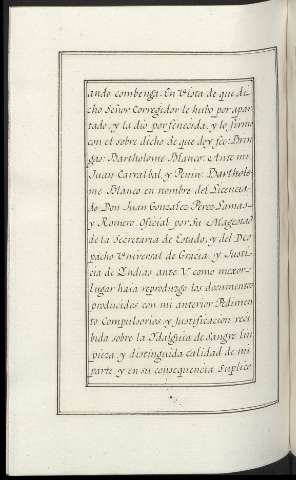 ando combenga: En Vista de que di
cho Señor Corregidor le hubo por apar
tado, y la dio por fenecida, y lo firmo
con el sobre dicho de que doy fee: Brin
gas: Bartholome Blanco: Ante mi:
Juan Carrabal, y Penin: Barthole
me Blanco en nombre del Licencia
do Don Juan Gonzalez Perez Lamas
y Romero Oficial por Su Magestad
de la Secretaria de Estado, y del Des
pacho Universal de Gracia, y Justi
cia de Yndias ante V. como mexor
lugar haia reproduzgo los documentos
producidos con mi anterior Pedimen
to Compulsorios y justificacion reci
bida sobre la Ydalguia de Sangre lim
pieza, y distinguida calidad de mi
parte y en su consequencia Suplico